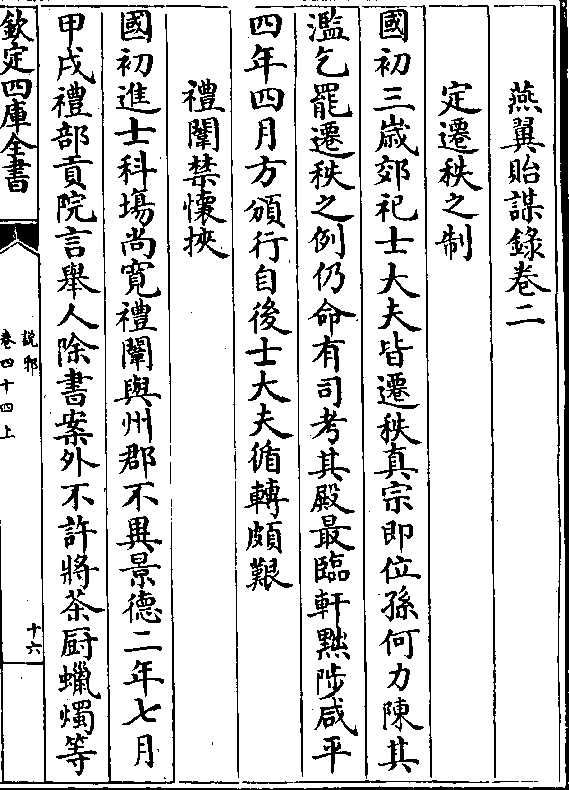 燕翼貽謀錄卷二
定遷秩之制
國初三歲郊祀士大夫皆遷秩真宗即位孫何力陳其
濫乞罷遷秩之例仍命有司考其殿最臨軒黜陟咸平
四年四月方頒行自後士大夫循轉頗艱
禮闈禁懷挾
國初進士科場尚寛禮闈與州郡不異景德二年七月
甲戌禮部貢院言舉人除書案外不許將茶厨蠟燭等
欽定四庫全書
說郛
卷四十四上
十六